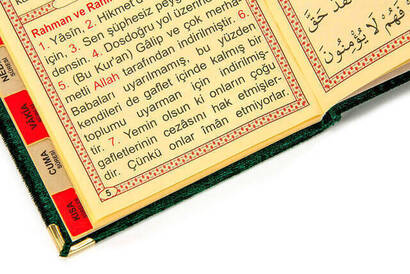 Rahman ve Rah
1. Yâsîn, 2. Hikmet
için, 3. Sen şüphesiz peyg
densin. 4. Dosdoğru yol üzerin
5. (Bu Kur'an) Gâlip ve çok merha
metli Allah tarafından indirilmiştir. 6.
Babaları uyarılmamış, bu yüzden
kendileri de gaflet içinde kalmış bir
toplumu uyarman için indirilmiş-
tir. 7. Yemin olsun ki onların çoğu
gafletlerinin cezasını hak etmişler-
dir. Çünkü onlar îmân etmiyorlar.
5
VÂKIA
CUMA
KISA
فَهُمْ لَا يُؤْمِنُونَ